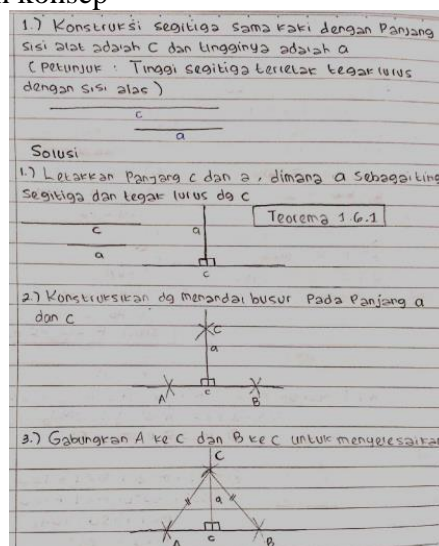 n konsep
1.) Konstruksi segitiga sama kaki dengan Panjang
sisi alat adalah C dan tingginya adalah a
(Petunjuk : Tinggi segitiga terletak tegak lurus
dengan sisi alas)
c
a
Solusi
1.) Letakkan Panjang c dan a, dimana a sebagai ting
segitiga dan tegak lurus dg c
Teorema 1.6.1
c
a
a
c
2.) Konstruksikan dg menandai busur Pada Panjang a
dan c
C
a
A
c
B
3.) Gabungkan A ke C dan B ke C untuk menyelesaikan
C
a
A
c
B